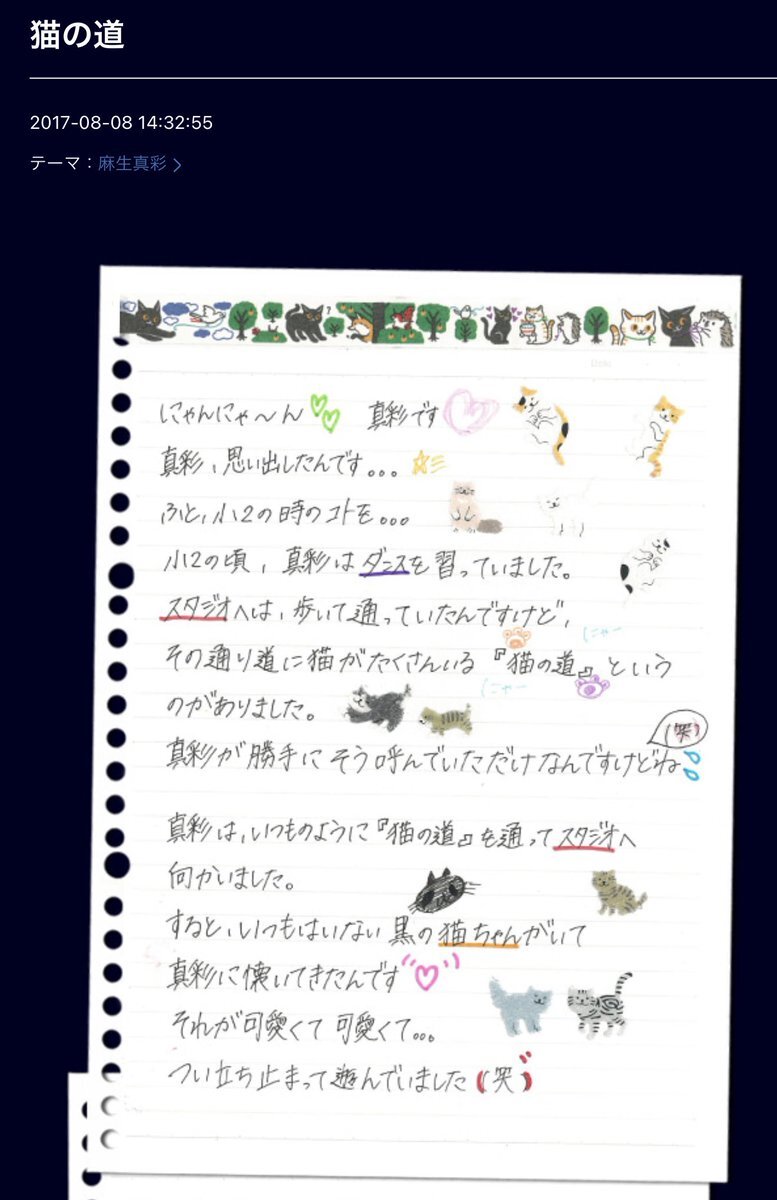 猫の道
2017-08-08 14:32:55
テーマ：麻生真彩 >
にゃんにゃ〜ん 真彩です
真彩、思い出したんです。。。
ふと、小2の時のコトを。。。
小2の頃、真彩はダンスを習っていました。
スタジオへは、歩いて通っていたんですけど、
にゃー
その通り道に猫がたくさんいる『猫の道』という
にゃー
のがありました。
(笑)
真彩が勝手にそう呼んでいただけなんですけどね
真彩は、いつものように『猫の道』を通ってスタジオへ
向かいました。
すると、いつもはいない黒の猫ちゃんがいて
真彩に懐いてきたんです
それが可愛くて可愛くて。。。
つい立ち止まって遊んでいました(笑)